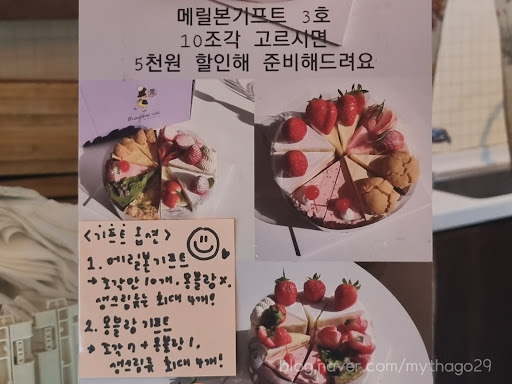 메릴본기프트 3호
10조각 고르시면
5천원 할인해 준비해드려요
<기프트 옵션>
1. 메릴본기프트
→ 조각만 10개, 몽블랑 x,
생크림류는 최대 4개!
2. 몽블랑 기프트
→ 조각 7 + 몽블랑 1,
생크림류 최대 4개!
blog.naver.com/mythago29